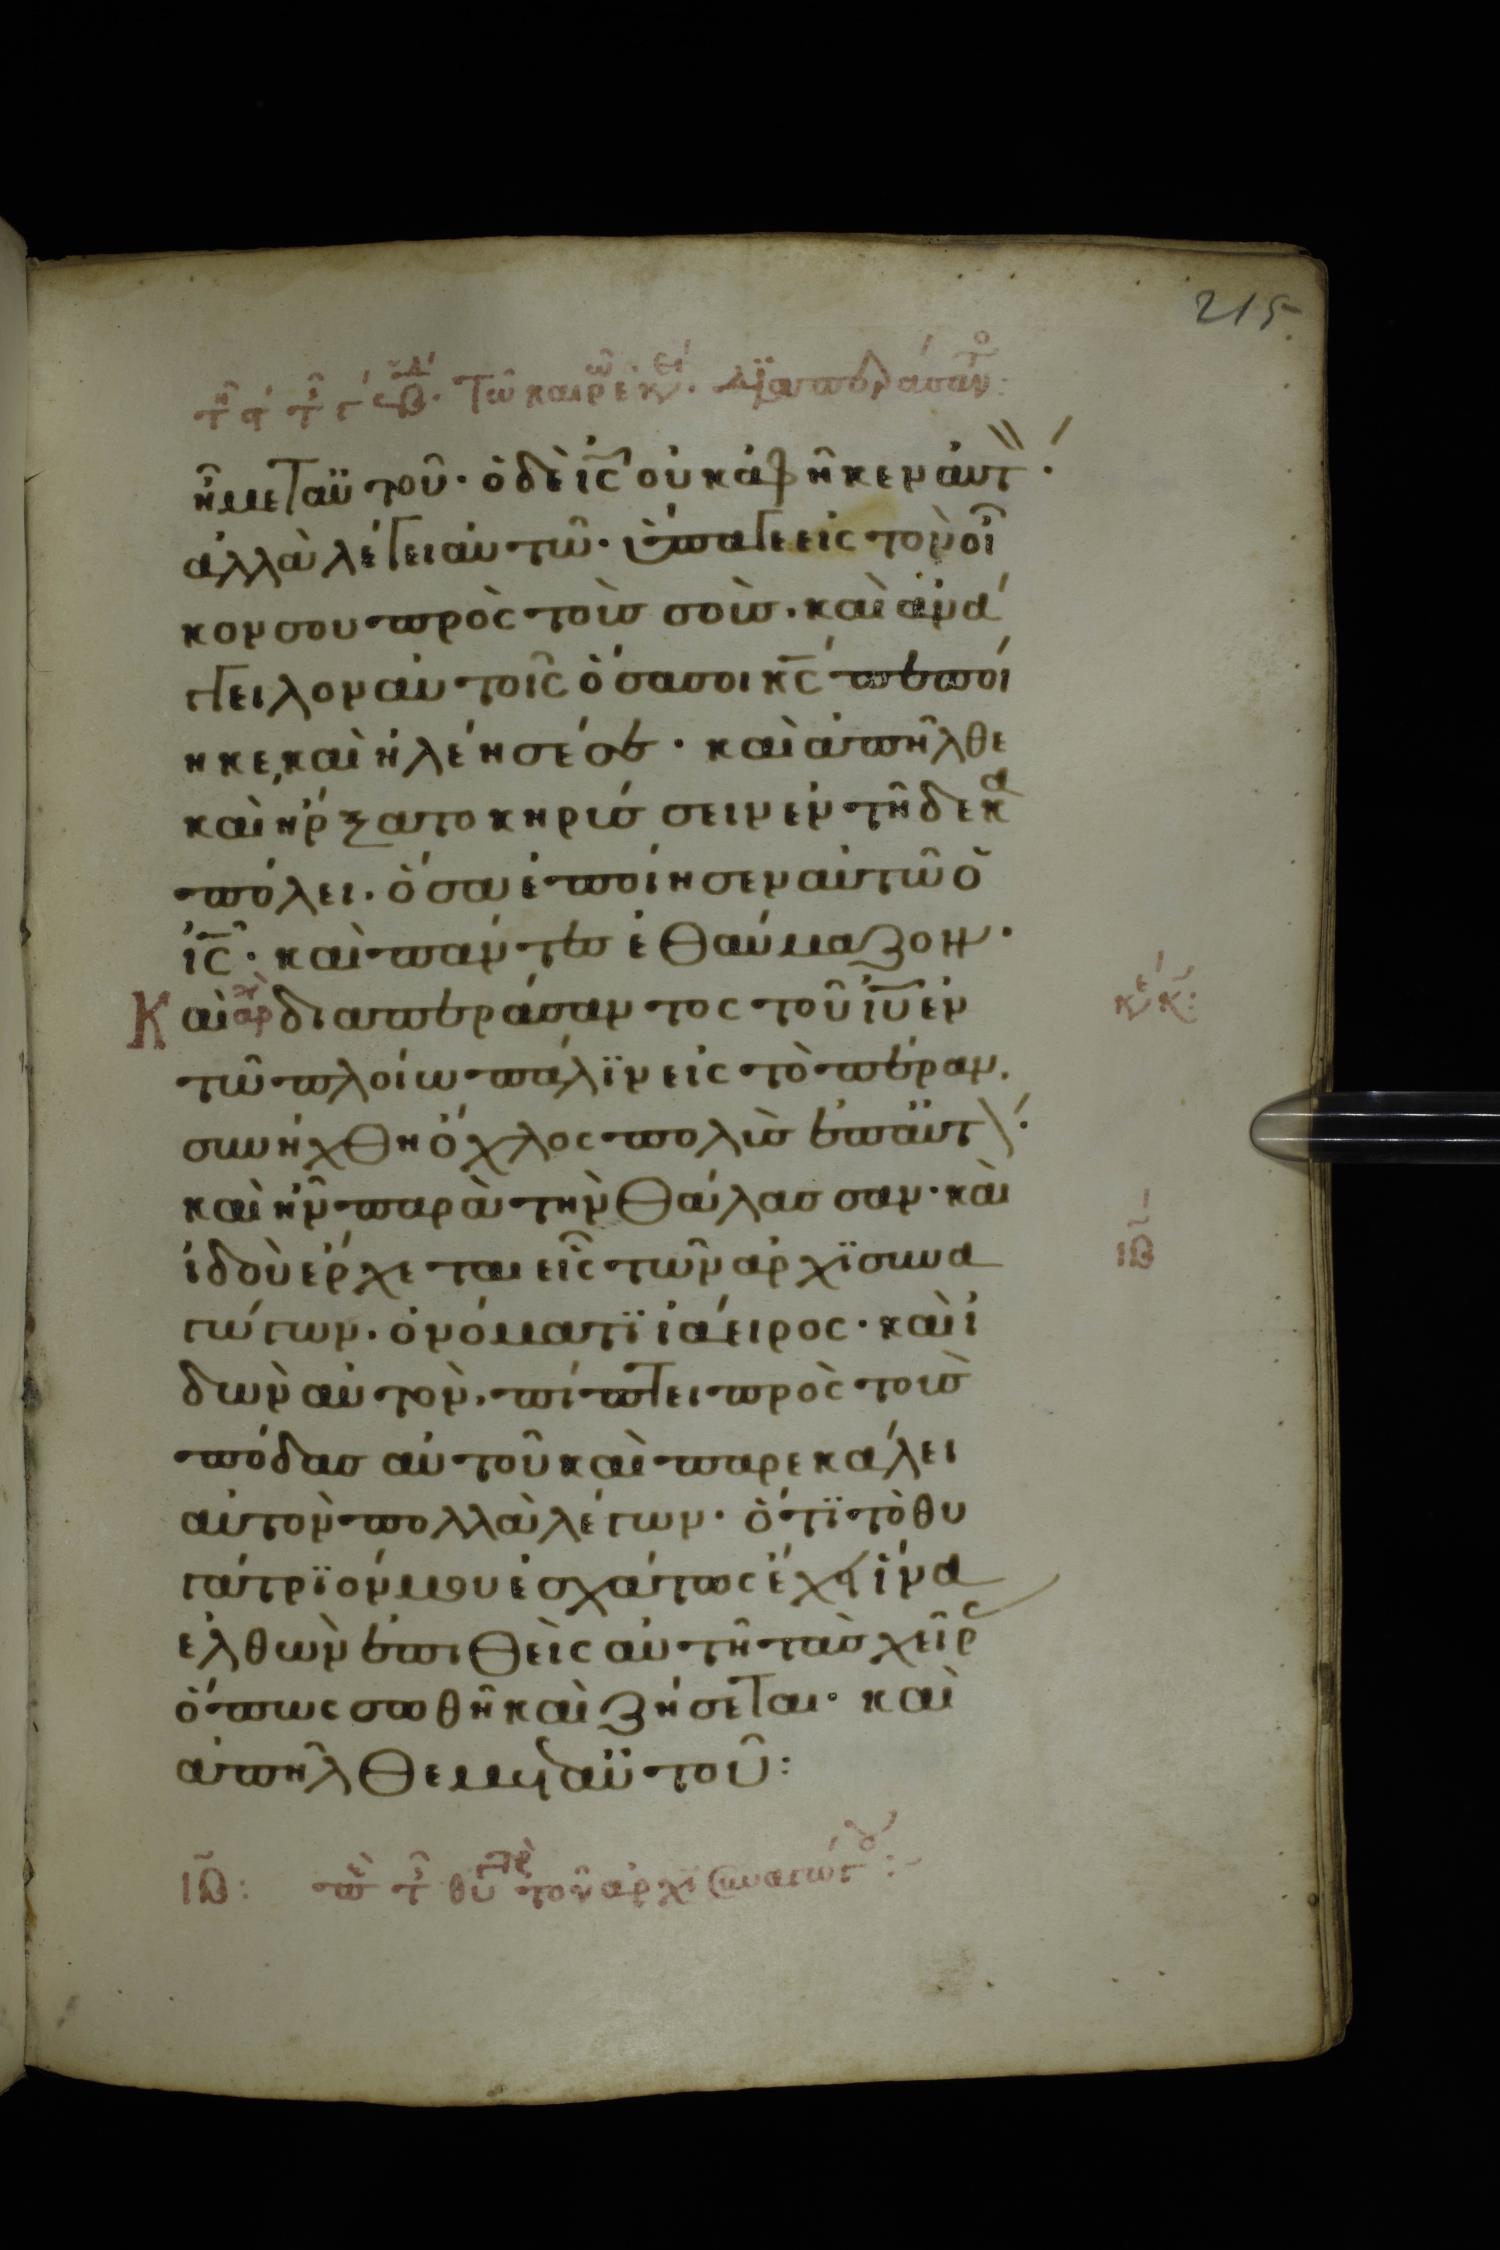 215
Τῶ καιρ ἐκείν διαπεράσαντο
ἦ μετ αὐτοῦ· ὁ δὲ ἰς οὐκ ἀφῆκεν αὐτ·
ἀλλὰ λέγει αὐτῶ· ὕπαγε εἰς τὸν οἶ
κον σου πρὸς τοὺς σοὺς· καὶ ἀνά
γγειλον αὐτοῖς ὅσα σοι κς πεποί
ηκε, καὶ ἠλέησέ σε· καὶ ἀπῆλθε
καὶ ἤρξατο κηρύσσειν ἐν τῆ δεκα
πόλει· ὅσα ἐποίησεν αὐτῶ ὁ
ἰς· καὶ πάντες ἐθαύμαζον·
Καὶ αρχ διαπεράσαντος τοῦ ἰυ ἐν
τῶ πλοίω πάλϊν εἰς τὸ πέραν·
συνήχθη ὄχλος πολὺς ἐπ αὐτ·
καὶ ἦν παρὰ τὴν θάλασσαν· καὶ
ἰδοὺ ἔρχεται εἷς τῶν ἀρχϊσυνα
γώγων· ὀνόματϊ ἰάειρος· καὶ ἰ
δὼν αὐτὸν· πίπτει πρὸς τοὺς
πόδας αὐτοῦ καὶ παρεκάλει
αὐτὸν πολλὰ λέγων· ὅτϊ τὸ θυ
γάτρϊον μου ἐσχάτως ἔχει ἵνα
ἐλθὼν ἐπιθεὶς αὐτῆ τὰς χεῖρ
ὅπως σωθῆ καὶ ζήσεται· καὶ
ἀπῆλθε μετ αὐτοῦ:
ιβ
ιβ: πε τ θυγτρ τοῦ ἀρχϊσυναγώγου: